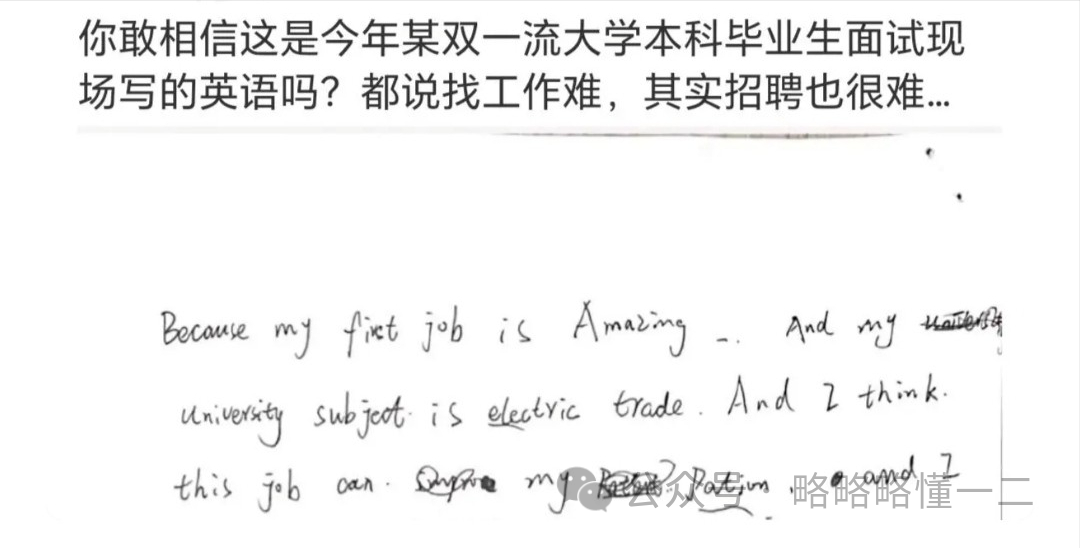 你敢相信这是今年某双一流大学本科毕业生面试现
场写的英语吗？都说找工作难，其实招聘也很难...
Because my first job is Amazing And my
university subject. is electric trade. And I think.
this job can. my and I
公众号 · 略略略懂一二